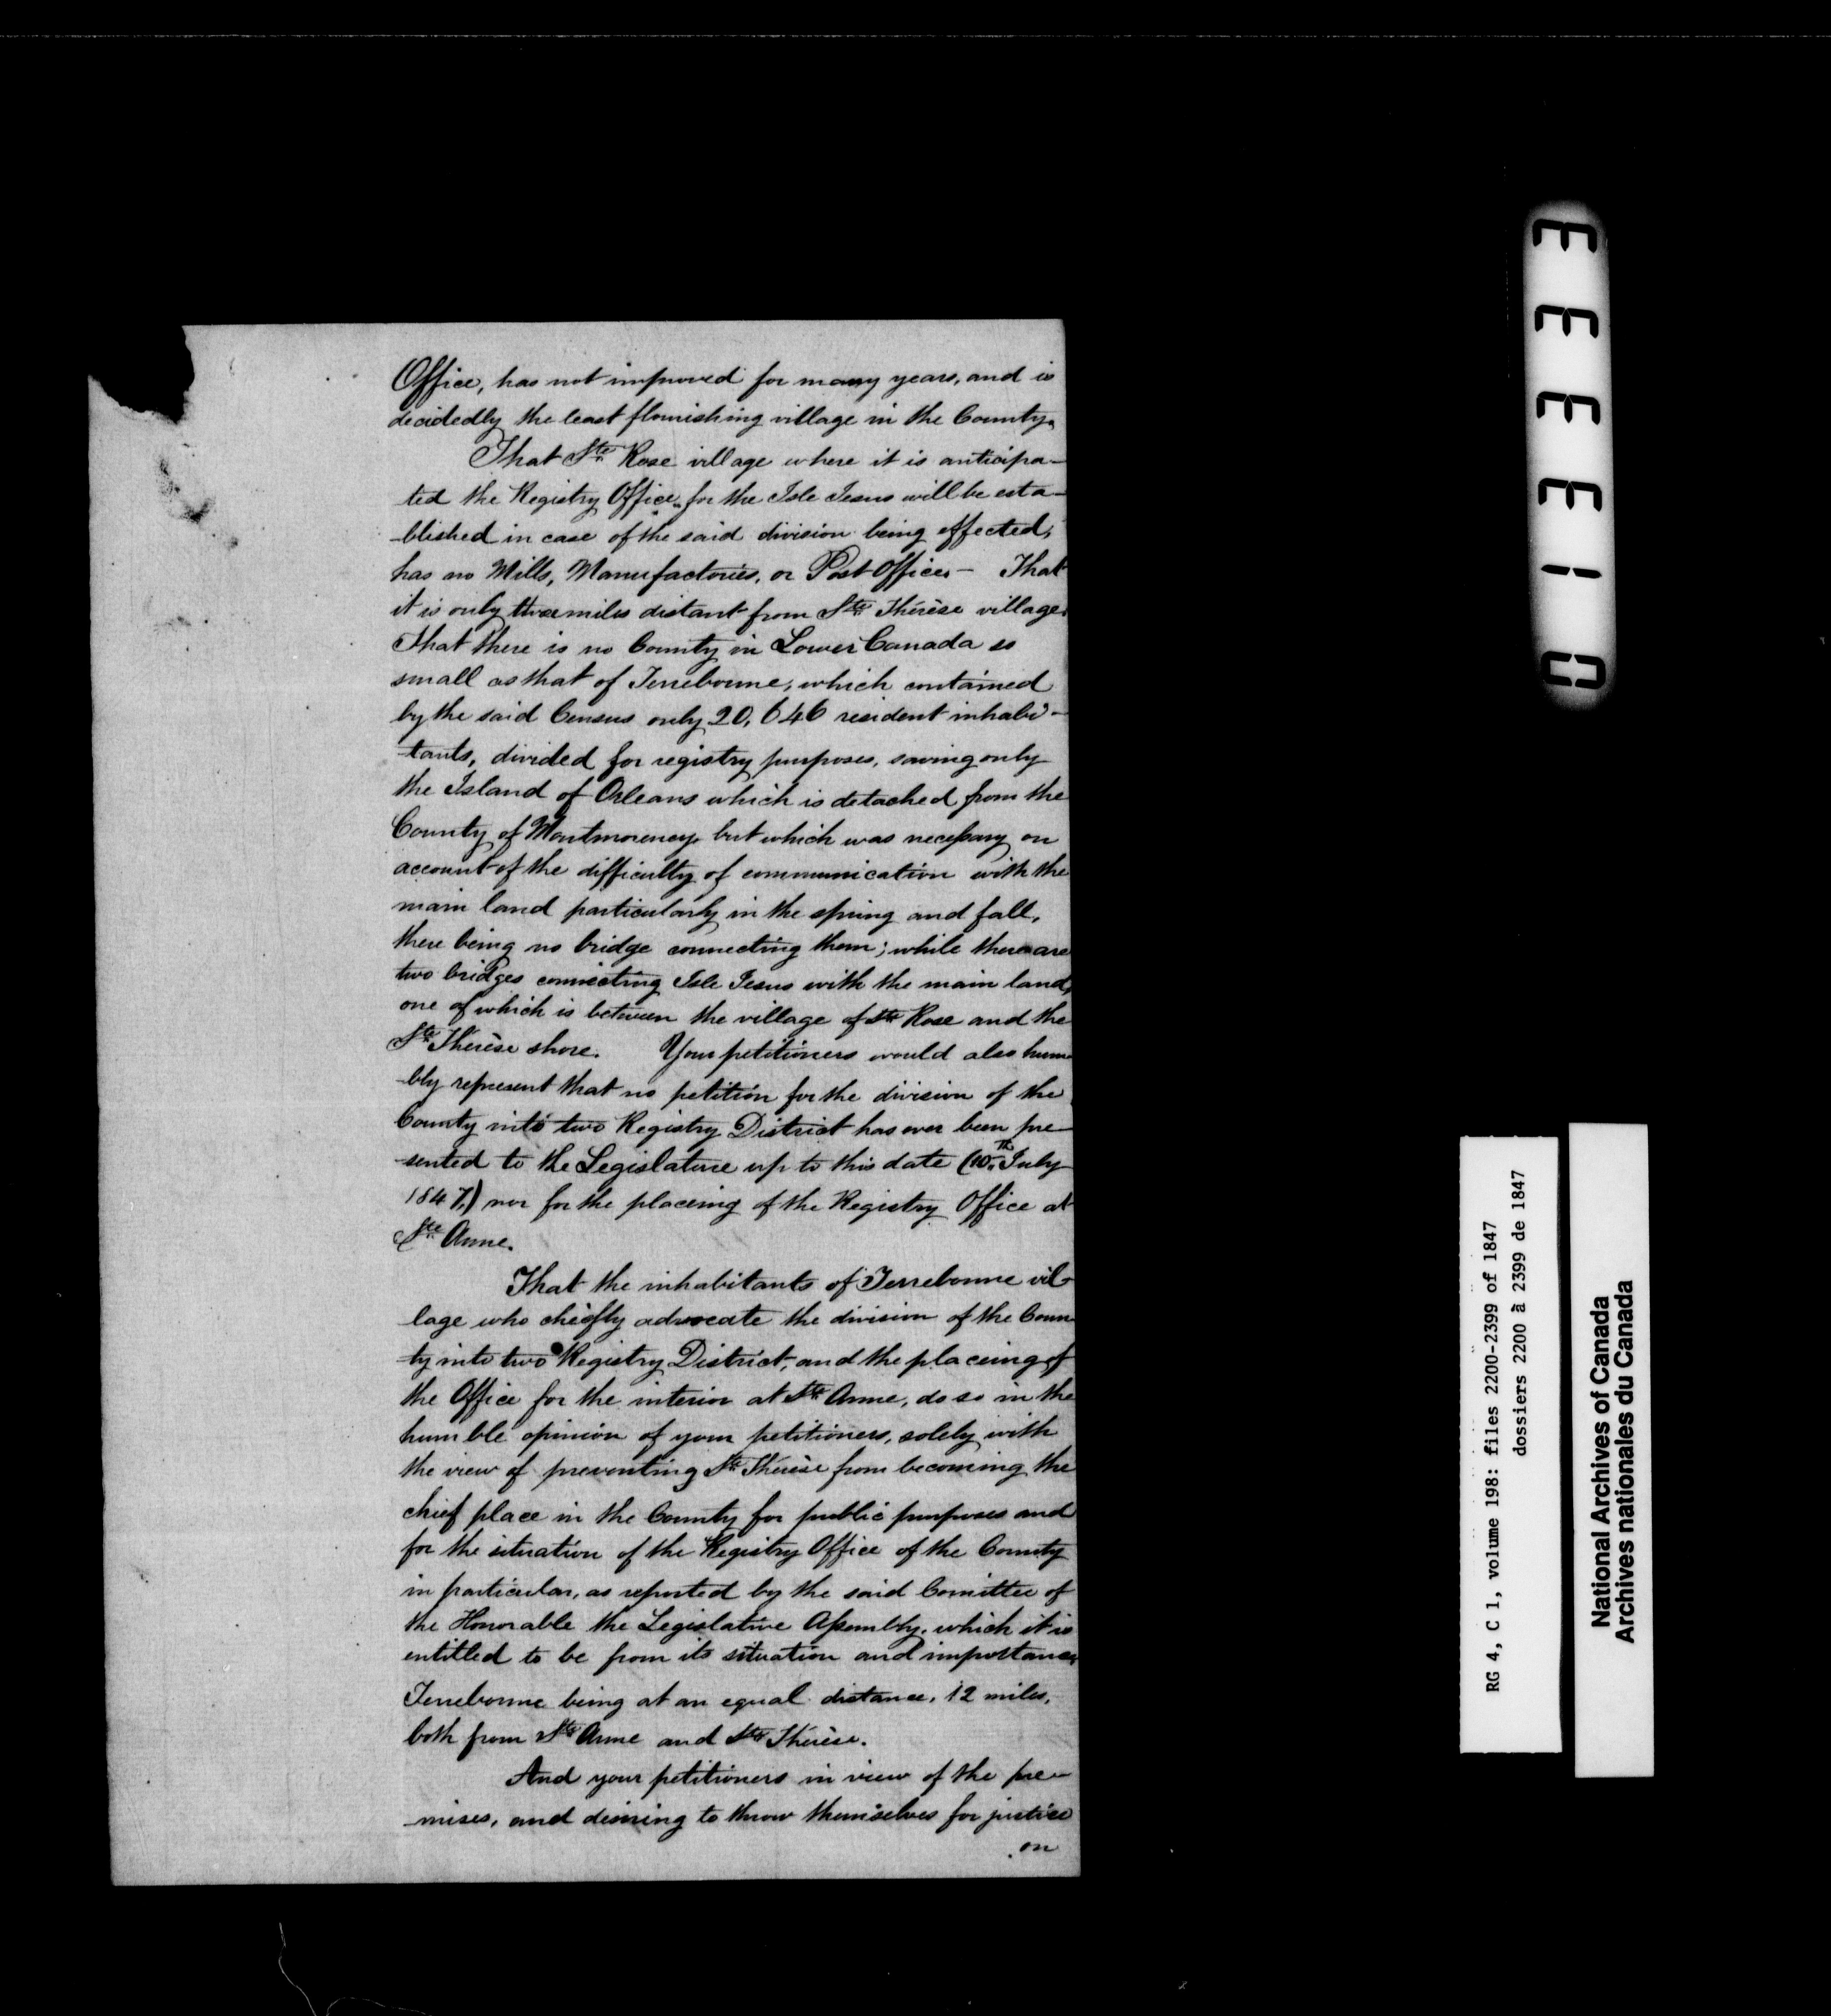 Office, has not improved for many years, and is
decidedly the least flourishing village in the County.
That Ste Rose village where it is anticipa-
ted the Registry Office for the Isle Jesus will be esta-
-blished in case of the said division being effected,
has no Mills, Manufactories, or Post Office. — That
it is only three miles distant from Ste Thérèse village.
That there is no County in Lower Canada so
small as that of Terrebonne, which contained
by the said Census only 20,646 resident inhabi-
-tants, divided for registry purposes, saving only
the Island of Orleans which is detached from the
County of Montmorency but which was necessary on
account of the difficulty of communication with the
main land particularly in the spring and fall,
there being no bridge connecting them; while there are
two bridges connecting Isle Jesus with the main land,
one of which is between the village of Ste Rose and the
Ste Thérèse shore. Your petitioners would also hum-
-bly represent that no petition for the division of the
County into two Registry District has ever been pre-
-sented to the Legislature up to this date (10th July
1847,) nor for the placeing of the Registry Office at
Ste Anne.
That the inhabitants of Terrebonne vil-
lage who chiefly advocate the division of the Coun-
ty into two Registry District, and the placeing of
the Office for the interior at Ste Anne, do so in the
humble opinion of your petitioners, solely with
the view of preventing Ste Thérèse from becoming the
chief place in the County for public purposes and
for the situation of the Registry Office of the County
in particular, as reported by the said Comittee of
the Honorable the Legislative Assembly, which it is
entitled to be from its situation and importance,
Terrebonne being at an equal distance, 12 miles,
both from Ste Anne and Ste Thérèse.
And your petitioners in view of the pre-
-mises, and desiring to throw themselves for justice
on
RG 4, C 1, volume 198: files 2200-2399 of 1847
dossiers 2200 à 2399 de 1847
National Archives of Canada
Archives nationales du Canada